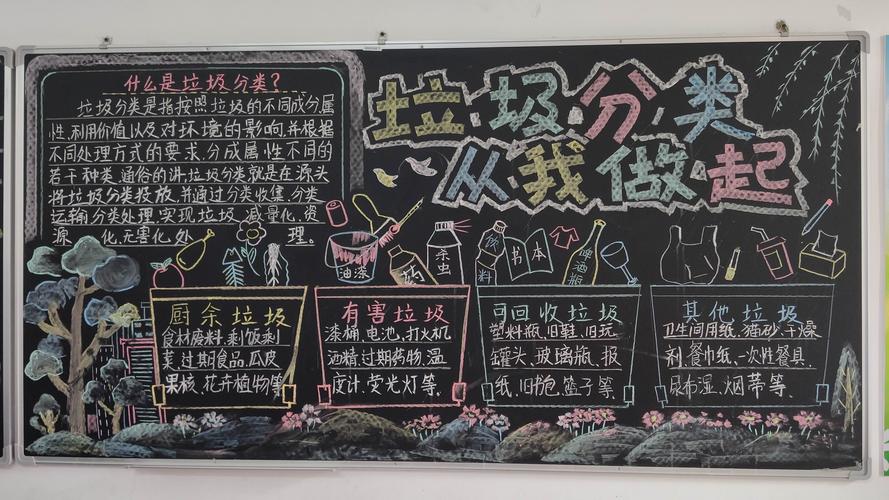 什么是垃圾分类?
垃圾分类是指按照垃圾的不同成分属
性、利用价值以及对环境的影响,并根据
不同处理方式的要求,分成属性不同的
若干种类,通俗的讲,垃圾分类就是在源头
将垃圾分类投放,并通过分类收集、分类
运输、分类处理,实现垃圾减量化、资
源化、无害化处理。
垃圾分类
从我做起
油漆
药
杀虫
饮料
书本
啤酒瓶
厨余垃圾
食材废料、剩饭剩
菜、过期食品、瓜皮
果核、花卉植物等
有害垃圾
漆桶、电池、打火机
酒精、过期药物、温
度计、荧光灯等、
可回收垃圾
塑料瓶、旧鞋、旧玩
罐头、玻璃瓶、报
纸、旧书包、篮子等、
其他垃圾
卫生间用纸、猫砂、干燥
剂、餐巾纸、一次性餐具、
尿布湿、烟蒂等、